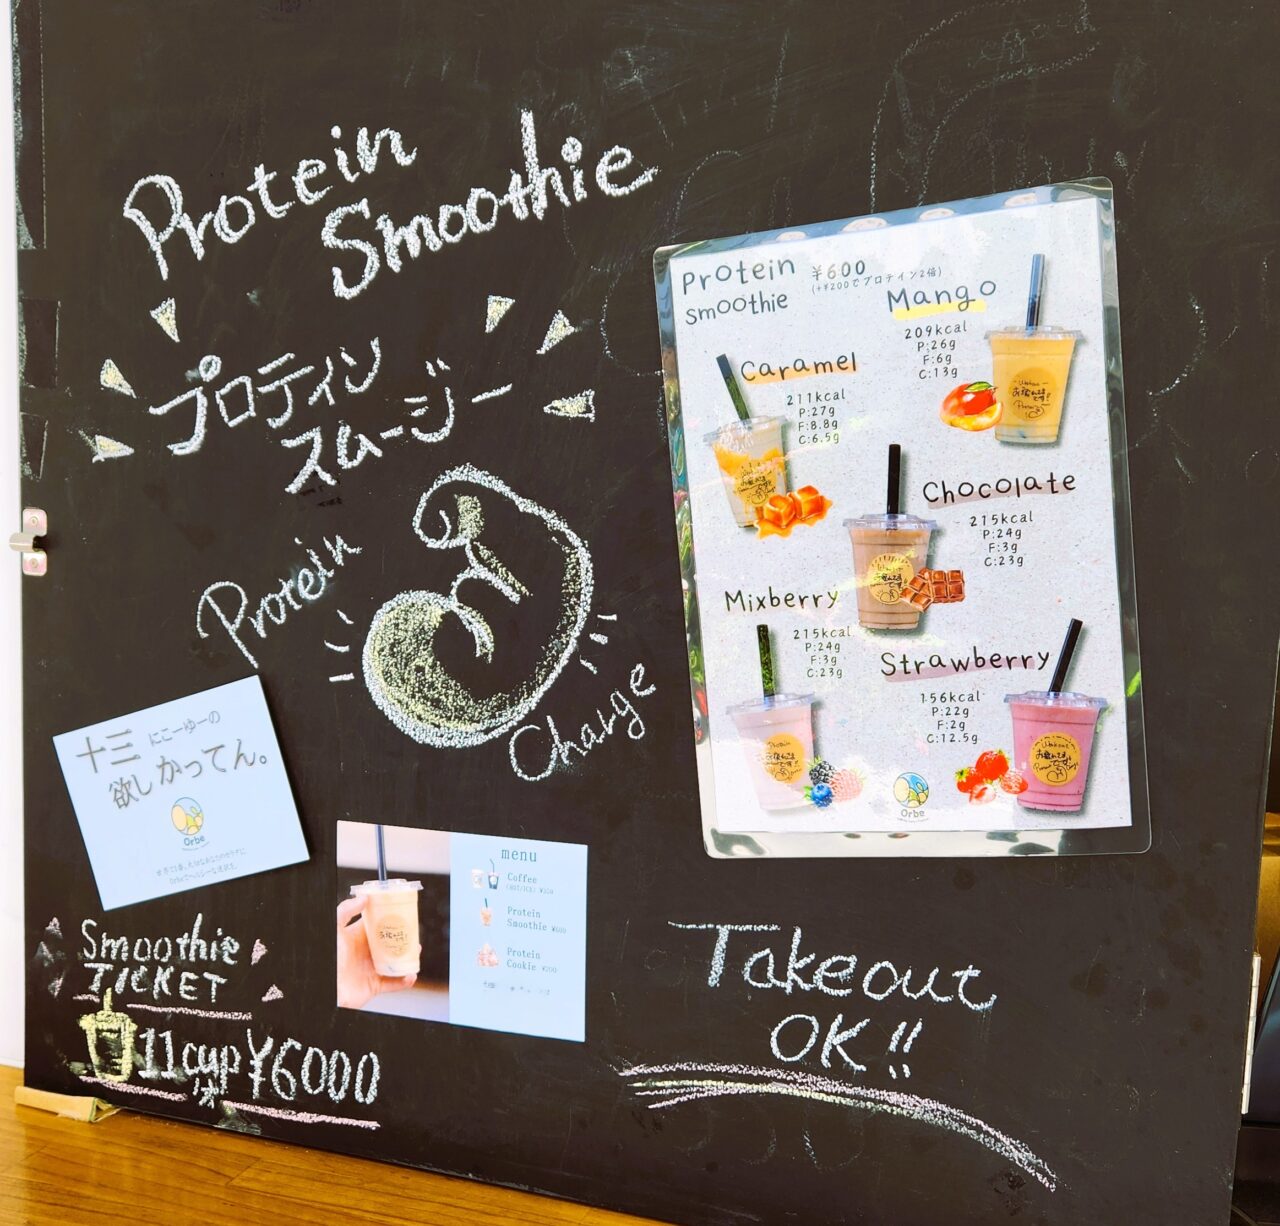 Protein
Smoothie
プロテイン
スムージー
Protein
Charge
Protein
smoothie
¥600
(+¥200でプロテイン2倍)
Mango
209kcal
P:26g
F:6g
C:13g
Caramel
211kcal
P:27g
F:8.8g
C:6.5g
Chocolate
215kcal
P:24g
F:3g
C:23g
Mixberry
215kcal
P:24g
F:3g
C:23g
Strawberry
156kcal
P:22g
F:2g
C:12.5g
Orbe
十三 にこーゆーの
欲しかってん。
Orbe
menu
Coffee
(HOT/ICE)
Protein
Smoothie ¥600
Protein
Cookie ¥200
Smoothie
TICKET
11cup ¥6000
Takeout
OK!!